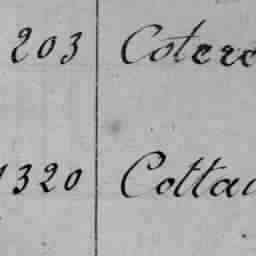 203 Cotere
1320 Cottai